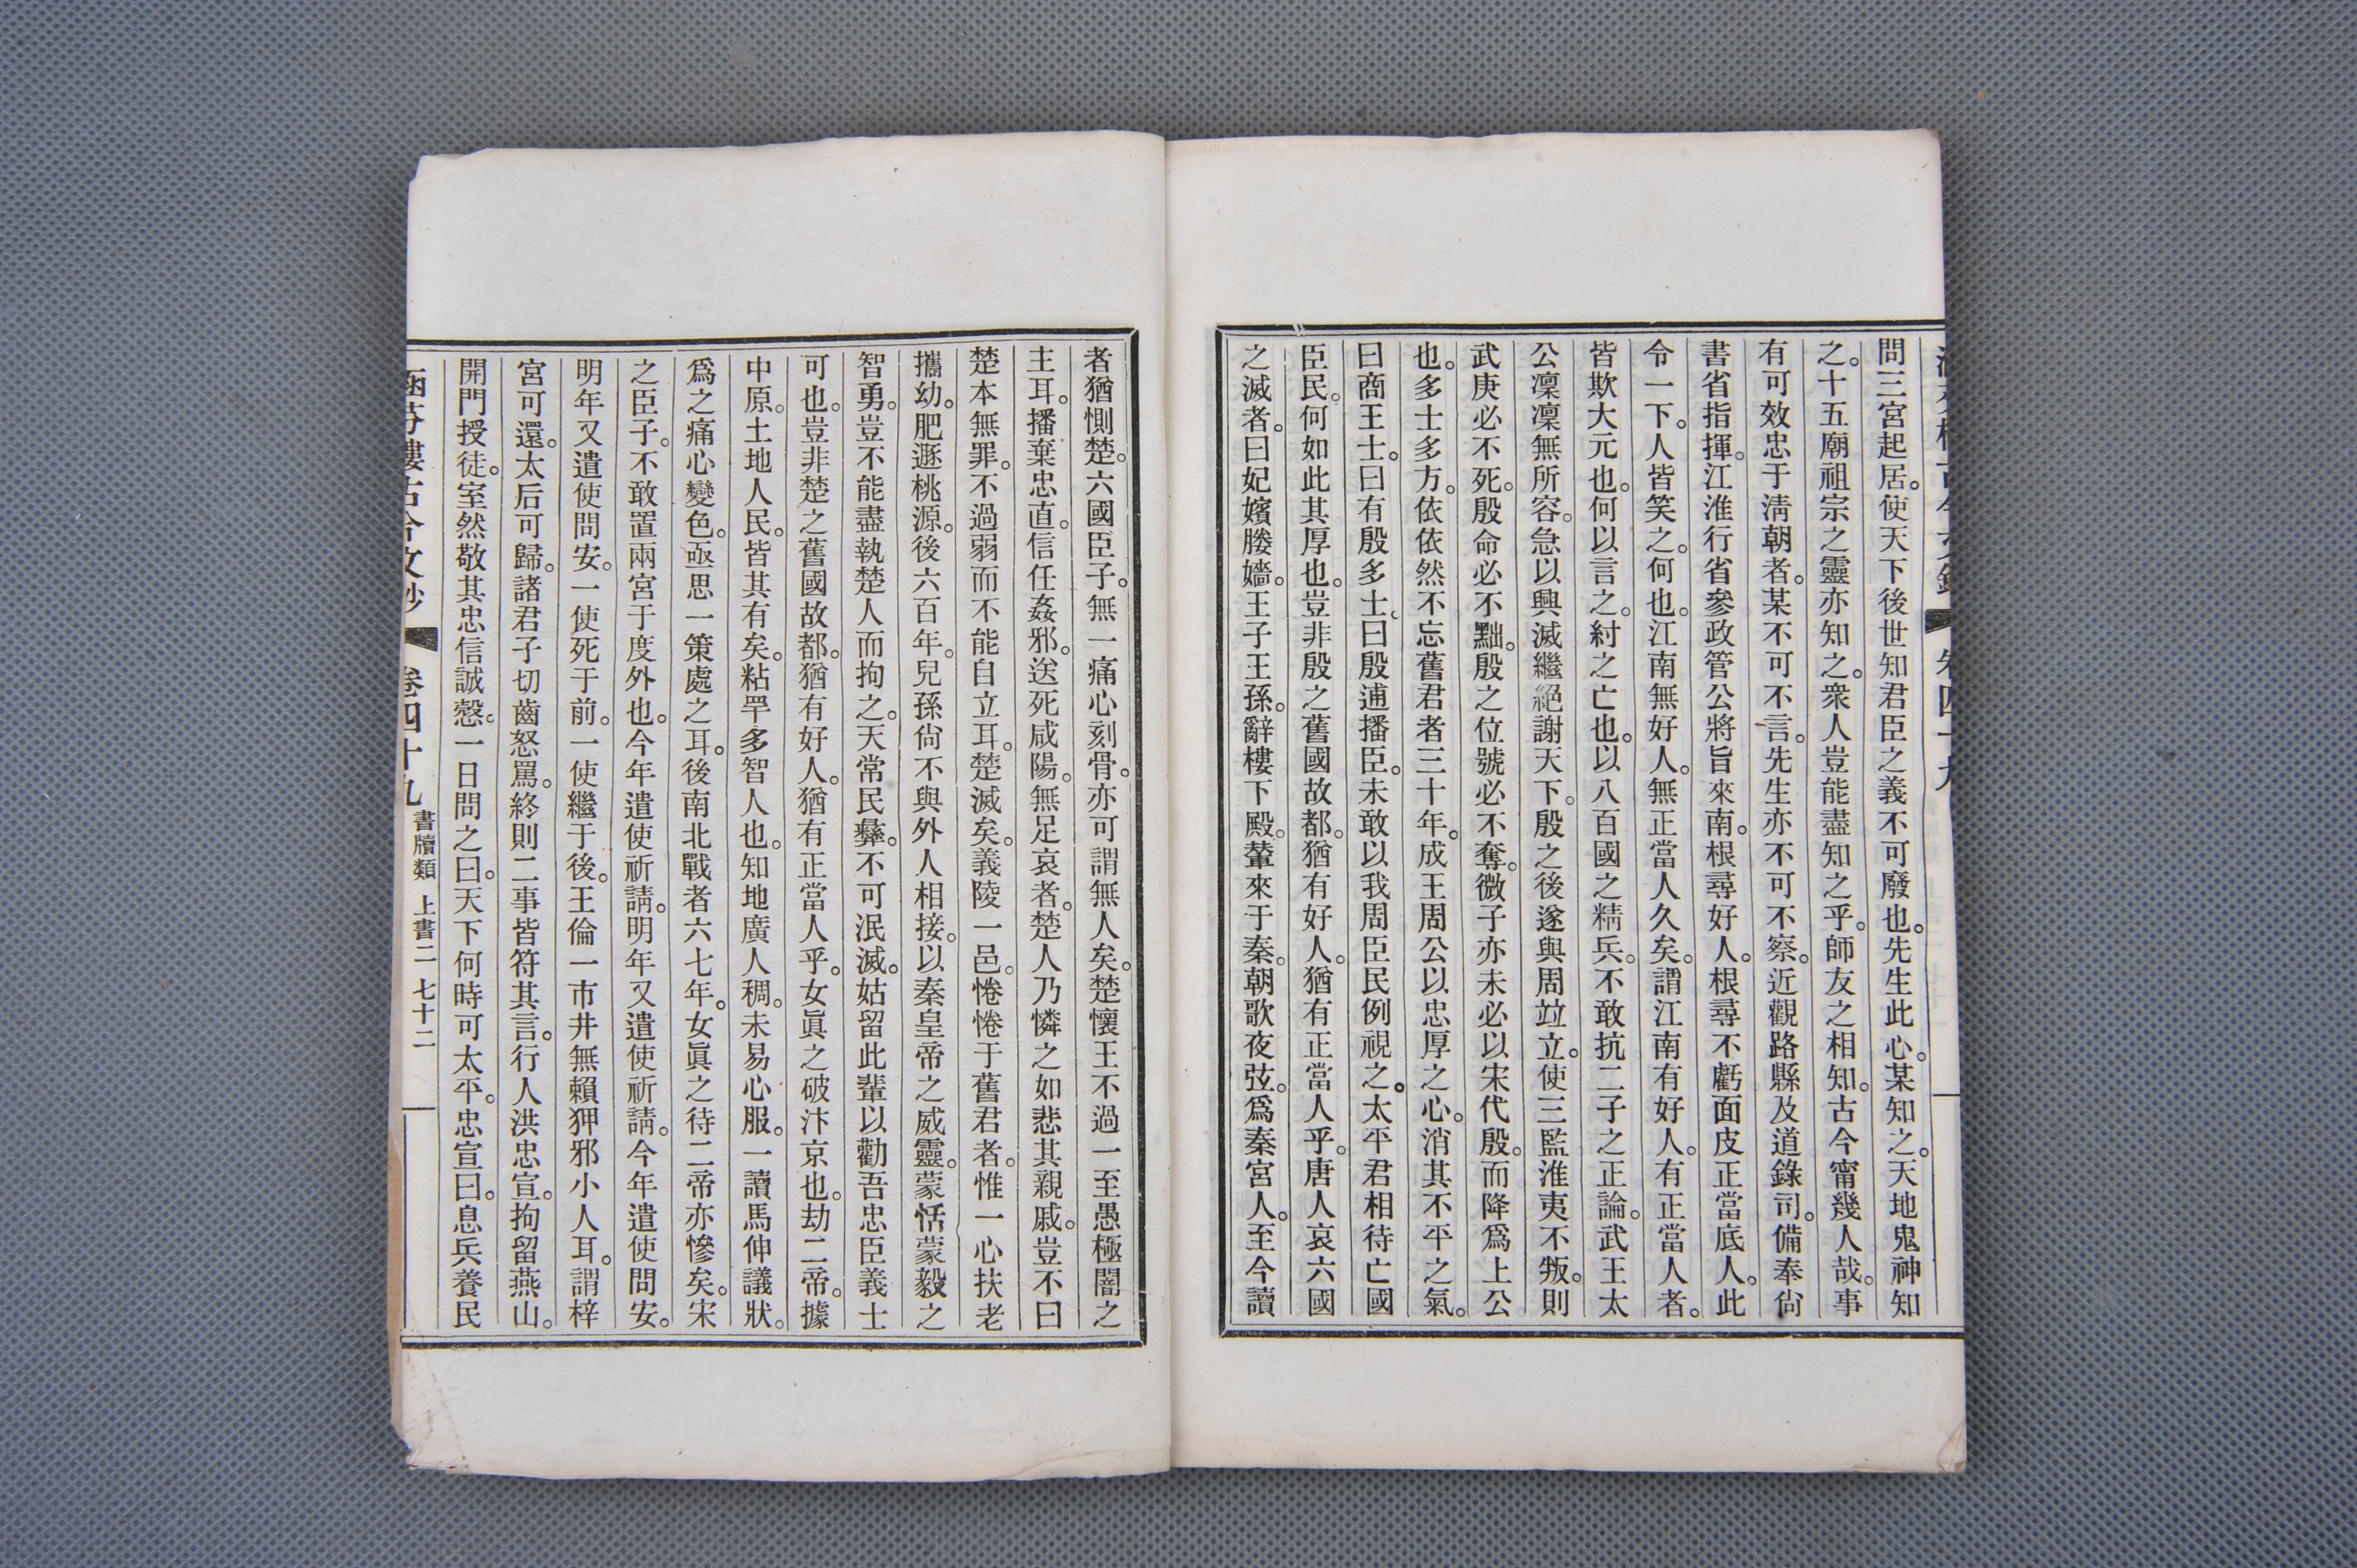 問三宮起居。使天下後世知君臣之義不可廢也。先生此心。某知之。天地鬼神知
之。十五廟祖宗之靈亦知之。衆人豈能盡知之乎。師友之相知。古今甯幾人哉。事
有可效忠于淸朝者。某不可不言。先生亦不可不察。近觀路縣及道錄司。備奉尙
書省指揮。江淮行省參政管公將旨來南。根尋好人。根尋不虧面皮正當底人。此
令一下。人皆笑之。何也。江南無好人。無正當人久矣。謂江南有好人。有正當人者。
皆欺大元也。何以言之。紂之亡也。以八百國之精兵。不敢抗二子之正論。武王太
公凜凜無所容。急以興滅繼絕謝天下。殷之後遂與周竝立。使三監淮夷不叛。則
武庚必不死。殷命必不黜。殷之位號必不奪。微子亦未必以宋代殷。而降爲上公
也。多士多方。依依然不忘舊君者三十年。成王周公以忠厚之心。消其不平之氣。
曰商王士。曰有殷多士、曰殷逋播臣。未敢以我周臣民例視之。太平君相待亡國
臣民。何如此其厚也。豈非殷之舊國故都。猶有好人。猶有正當人乎。唐人哀六國
之滅者。曰妃嬪媵嬙。王子王孫。辭樓下殿。輦來于秦。朝歌夜弦。爲秦宮人。至今讀
者猶惻楚。六國臣子。無一痛心刻骨。亦可謂無人矣。楚懷王不過一至愚極闇之
主耳。播棄忠直。信任姦邪。送死咸陽。無足哀者。楚人乃憐之如悲其親戚。豈不曰
楚本無罪。不過弱而不能自立耳。楚滅矣。義陵一邑。惓惓于舊君者。惟一心扶老
攜幼。肥遯桃源。後六百年。兒孫尙不與外人相接。以秦皇帝之威靈。蒙恬蒙毅之
智勇。豈不能盡執楚人而拘之。天常民彝。不可泯滅。姑留此輩以勸吾忠臣義士
可也。豈非楚之舊國故都。猶有好人。猶有正當人乎。女眞之破汴京也。劫二帝。據
中原。土地人民。皆其有矣。粘罕多智人也。知地廣人稠。未易心服。一讀馬伸議狀。
爲之痛心變色。亟思一策處之耳。後南北戰者六七年。女眞之待二帝亦慘矣。宋
之臣子。不敢置兩宮于度外也。今年遣使祈請。明年又遣使祈請。今年遣使問安。
明年又遣使問安。一使死于前。一使繼于後。王倫一市井無賴狎邪小人耳。謂梓
宮可還。太后可歸。諸君子切齒怒罵。終則二事皆符其言。行人洪忠宣。拘留燕山。
開門授徒。室然敬其忠信誠慤。一日問之曰。天下何時可太平。忠宣曰。息兵養民
涵芬樓古今文鈔 卷四十九 書牘類 上書二 七十二